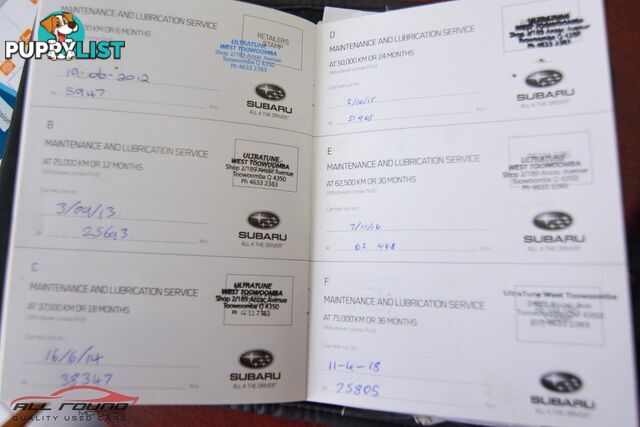 PUPPYLIST
MAINTENANCE AND LUBRICATION SERVICE
KM OR 6 MONTHS
(Whichever comes first)
RETAILERS STAMP
ULTRATUNE
WEST TOOWOOMBA
Shop 2/189 Anzac Avenue
Toowoomba Q 4350
Ph 4633 2383
19-06-2012
At 5947
SUBARU
ALL 4 THE DRIVER
B
MAINTENANCE AND LUBRICATION SERVICE
AT 25,000 KM OR 12 MONTHS
(Whichever comes first)
ULTRATUNE
WEST TOOWOOMBA
Shop 2/189 Anzac Avenue
Toowoomba Q 4350
Ph 4633 2383
Carried out on:
3/09/13.
At 25693. Km
SUBARU
ALL 4 THE DRIVER
C
MAINTENANCE AND LUBRICATION SERVICE
AT 37,500 KM OR 18 MONTHS
(Whichever comes first)
ULTRATUNE
WEST TOOWOOMBA
Shop 2/189 Anzac Avenue
Toowoomba Q 4350
Ph 4633 2383
Carried out on:
16/6/14
At 38347 Km
SUBARU
ALL 4 THE DRIVER
D
MAINTENANCE AND LUBRICATION SERVICE
AT 50,000 KM OR 24 MONTHS
(Whichever comes first)
ULTRATUNE
WEST TOOWOOMBA
Shop 2/189 Anzac Avenue
Toowoomba Q 4350
Ph 4633 2383
Carried out on:
2/10/15
At Km
SUBARU
ALL 4 THE DRIVER
E
MAINTENANCE AND LUBRICATION SERVICE
AT 62,500 KM OR 30 MONTHS
(Whichever comes first)
ULTRATUNE
WEST TOOWOOMBA
Shop 2/189 Anzac Avenue
Toowoomba Q 4350
Ph 4633 2383
Carried out on:
7/11/16
At 62 498 Km
SUBARU
ALL 4 THE DRIVER
F
MAINTENANCE AND LUBRICATION SERVICE
AT 75,000 KM OR 36 MONTHS
(Whichever comes first)
UltraTune West Toowoomba
Carried out on:
11-4-18
At 75805 Km
SUBARU
ALL 4 THE DRIVER
ALL ROUND
MOTORS
QUALITY USED CARS